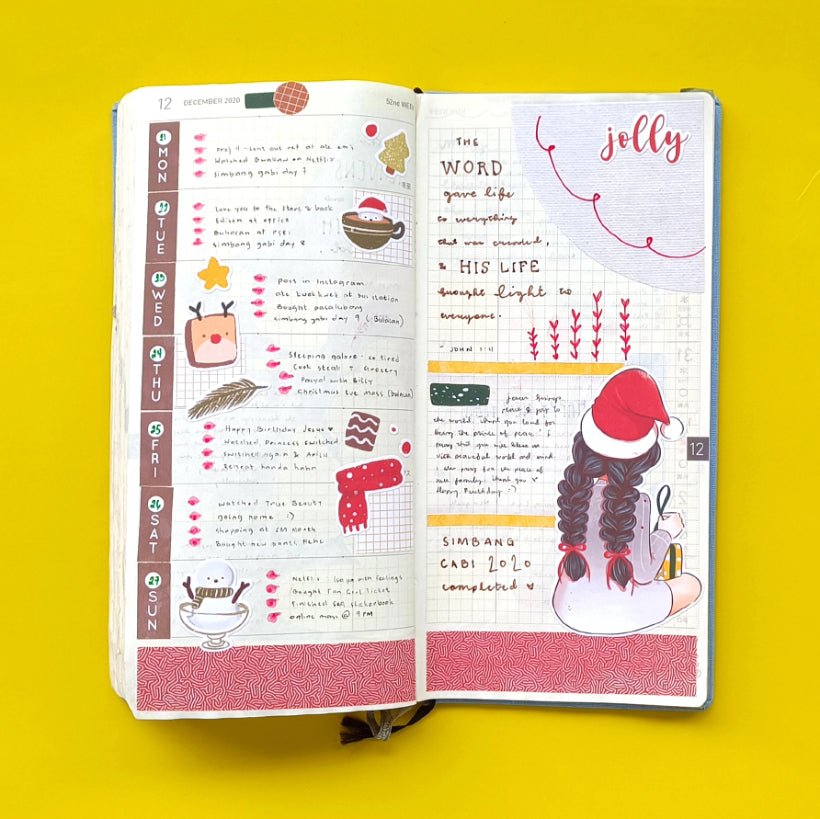 12 DECEMBER 2020
52ND WEEK
21
MON
Proj 4 - Cont out ret at ate em's
Watched Bwakaw on Netflix
Simbang gabi day 7
22
TUE
Love you to the stars & back
Edison at office
Buhocan at
Simbang gabi day 8
23
WED
Post in Instagram
ate kwekkwek at bus station
Bought pasalubong
Simbang gabi day 9 (:Bulacan)
24
THU
Sleeping galore - so tired
Cook steak & Grocery
with Billy
Christmas Eve mass (bulacan)
25
FRI
Happy Birthday Jesus ♥
Watched Princess Switched,
Switched again &
handa hahn
26
SAT
Watched True Beauty
going home :)
shopping at SM
Bought new pants Hehe
27
SUN
Netflix with feelings
Bought Fan Girl Ticket
Finished stickerbook
online mass @ 9 PM
jolly
THE
WORD
gave life
to everything
that was created,
& HIS LIFE
brought light to
everyone.
- JOHN 1:4
12
peace & joy to
the world. thank you Lord for
being the prince of peace. I
pray that you will bless us
with peaceful world and mind.
I also pray for the peace of
our family. thank you ♥
Happy Birthday :)
SIMBANG
GABI 2020
completed ♥